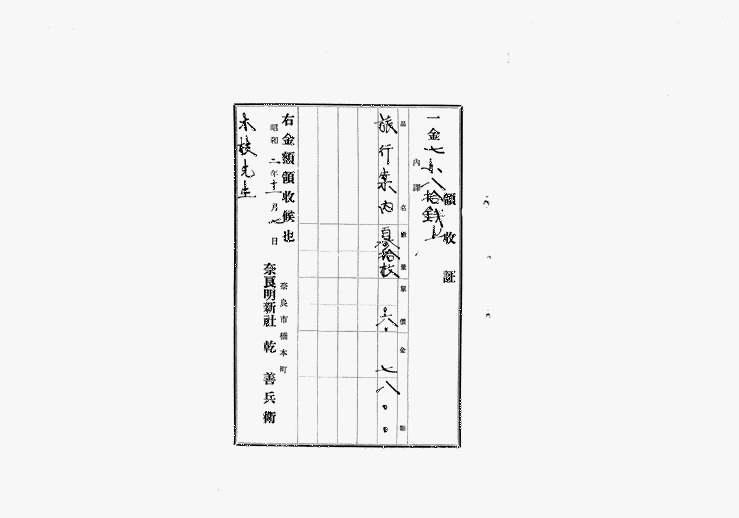 領收証
一金七円八拾銭也
内譯
品名 數量 單價 金額
旅行案内 百參拾枚 六、 七八〇〇
右金額領收候也
昭和二年十一月七日
奈良市橋本町
奈良明新社 乾 善兵衛
木枝先生